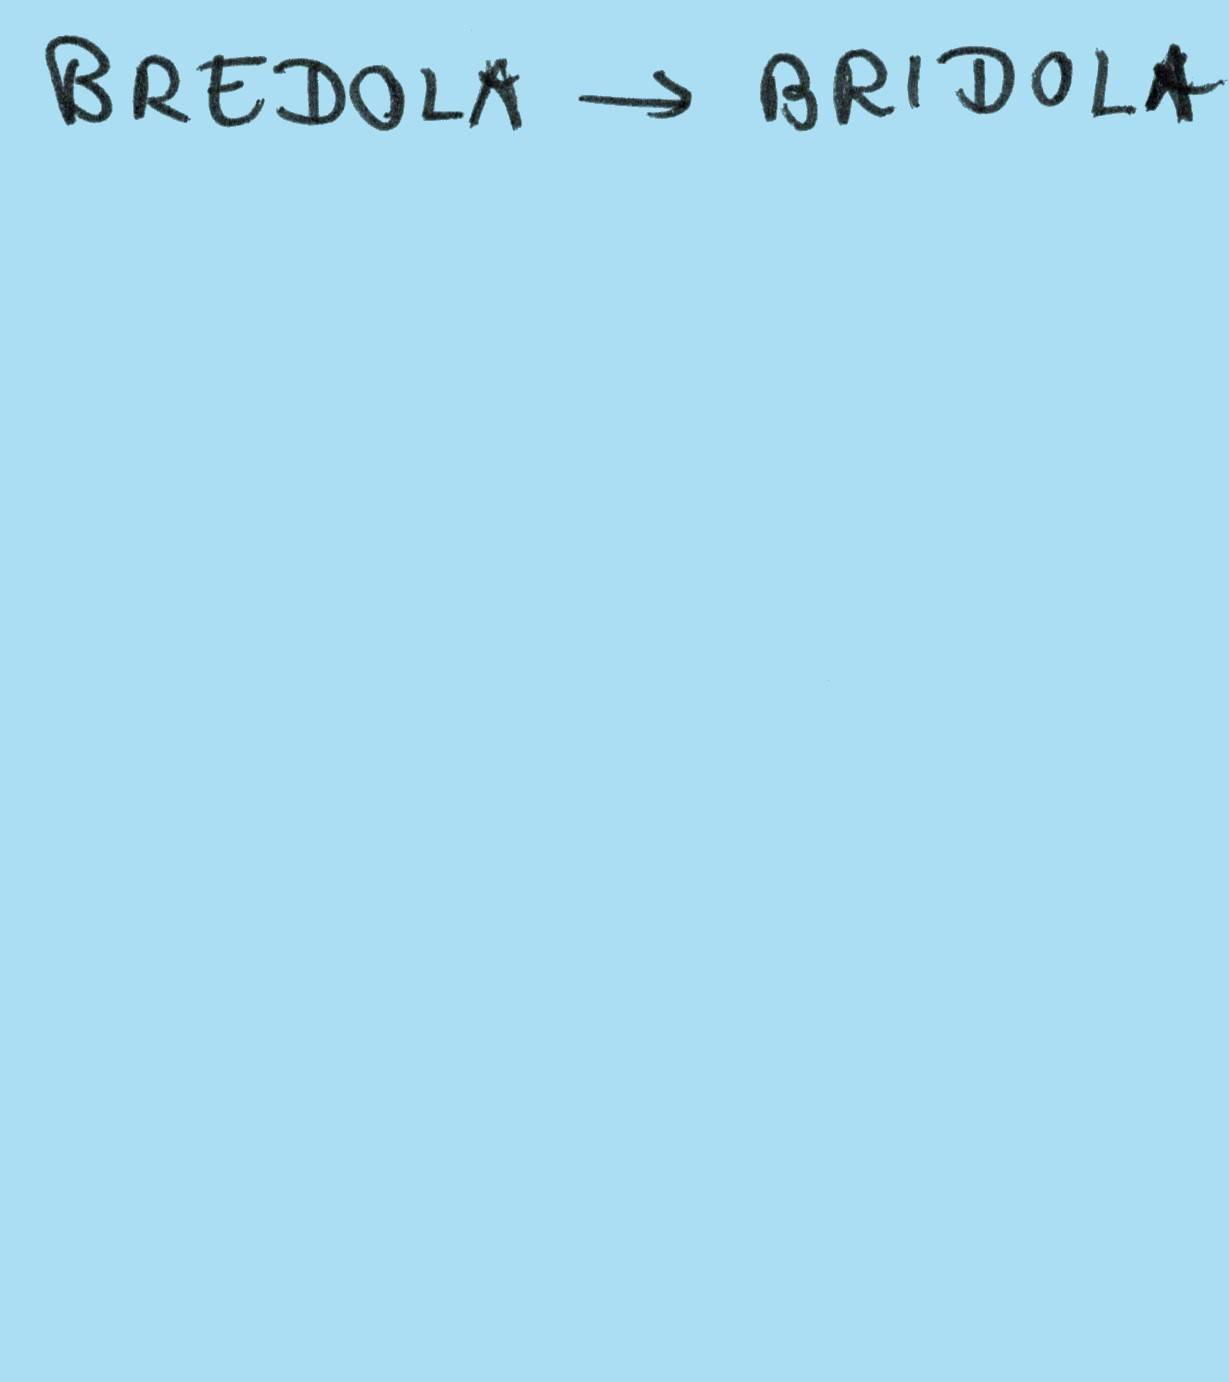 BREDOLA → BRIDOLA